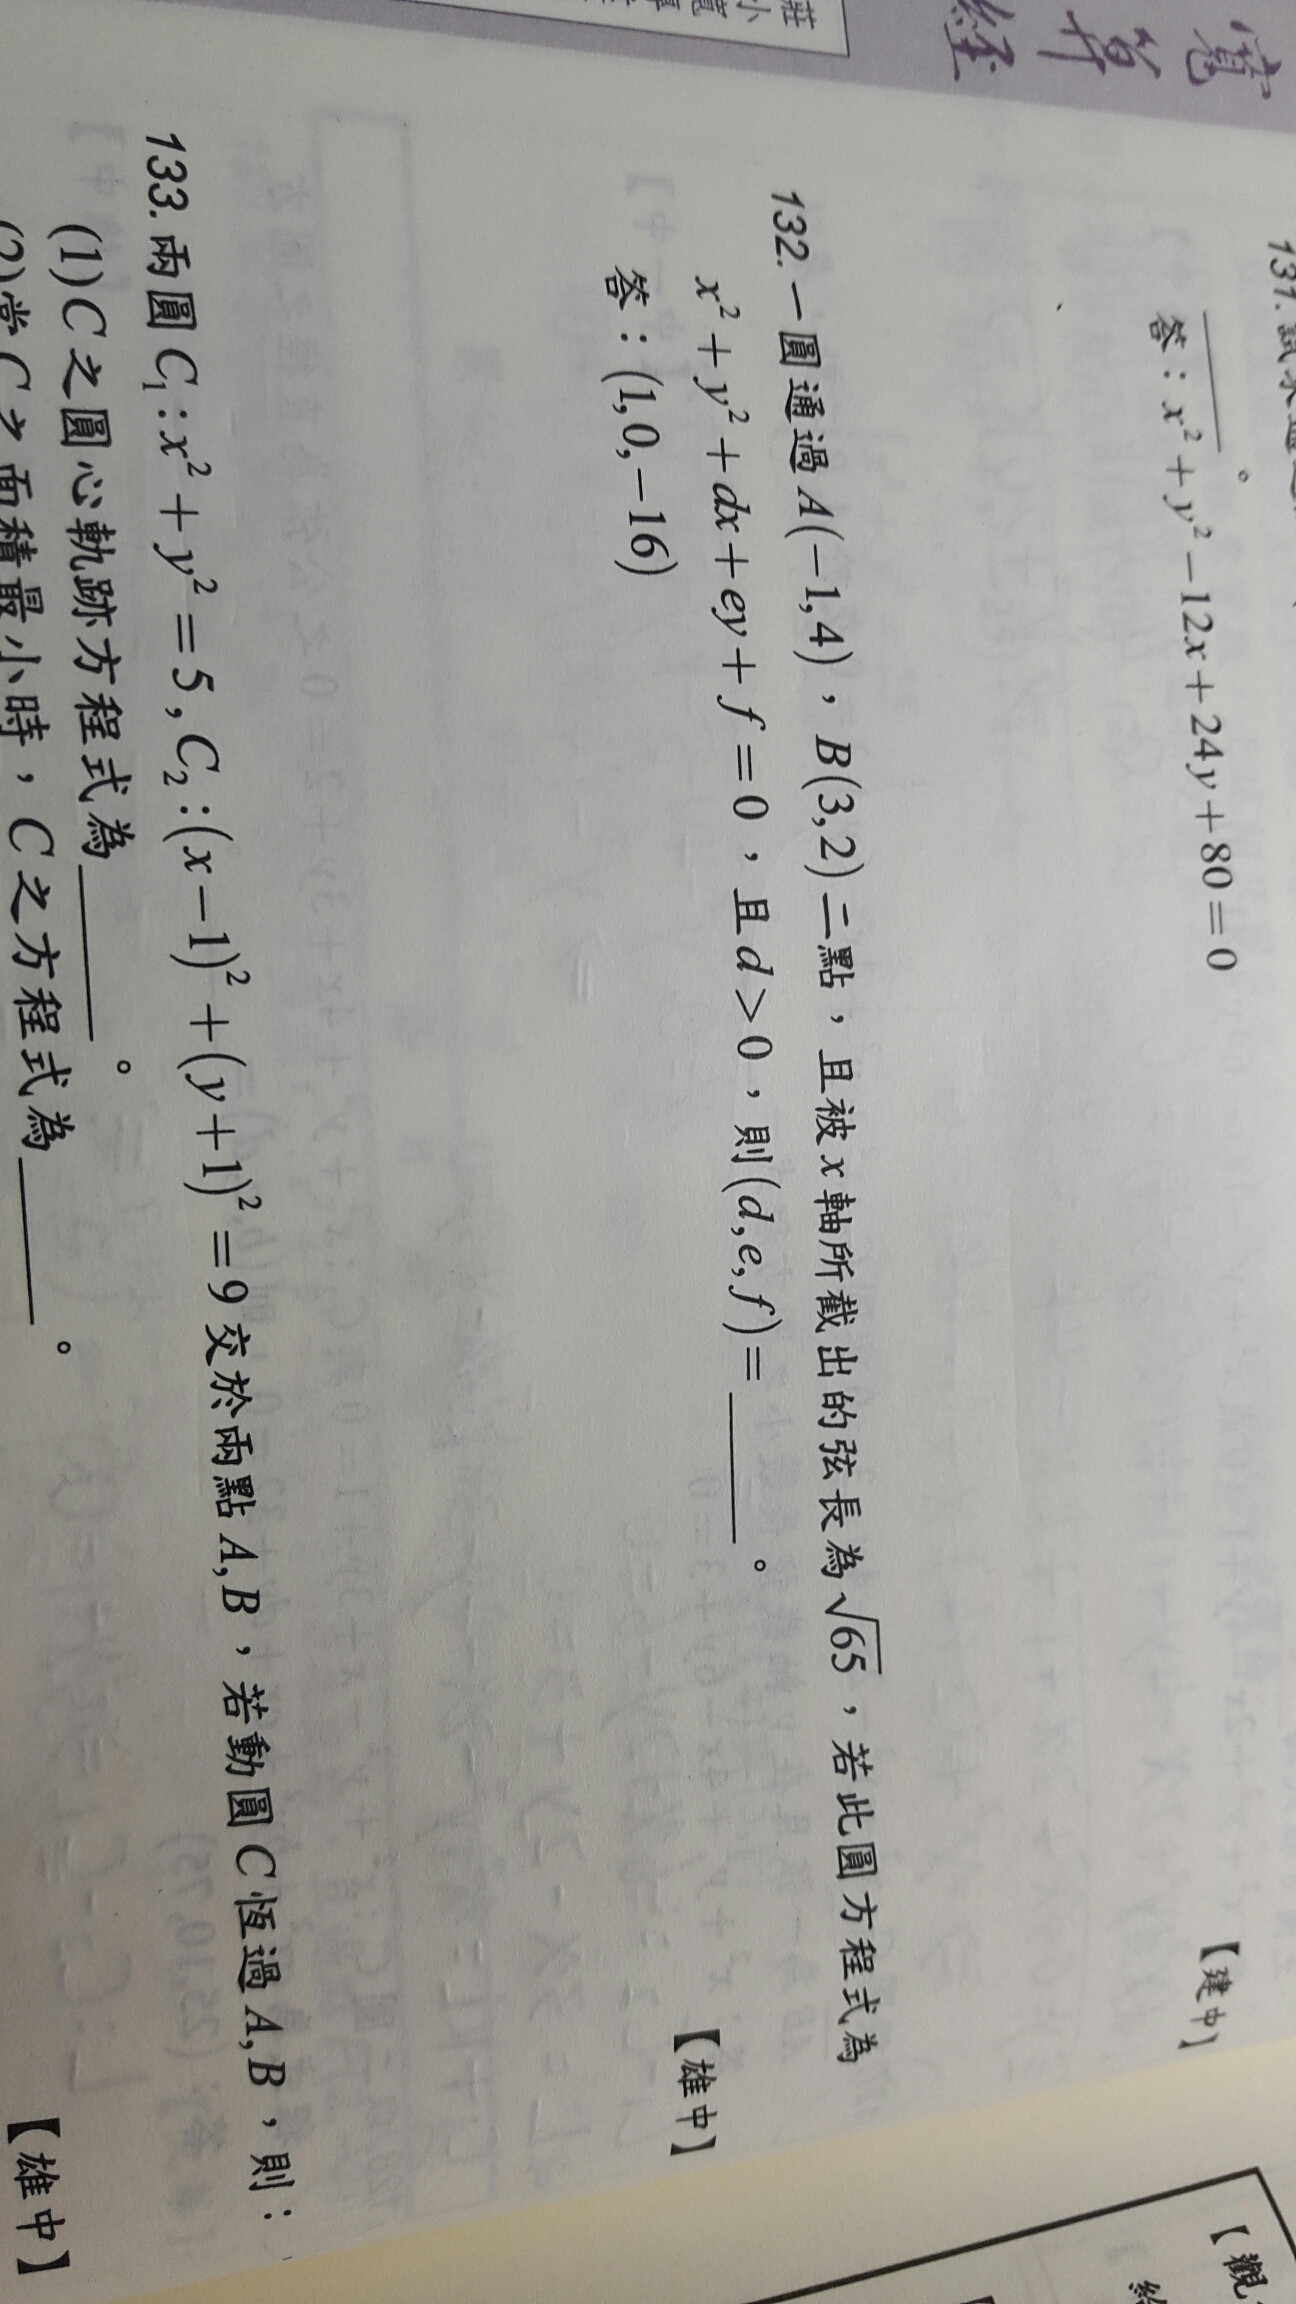 答：x²+y²−12x+24y+80=0
【建中】
132. 一圓通過A(−1,4)，B(3,2)二點，且被x軸所截出的弦長為√65，若此圓方程式為
x²+y²+dx+ey+f=0，且d>0，則(d,e,f)=______。
【雄中】
答：(1,0,−16)
133. 兩圓C₁:x²+y²=5,C₂:(x−1)²+(y+1)²=9交於兩點A,B，若動圓C恆過A,B，則：
(1)C之圓心軌跡方程式為______。
(2)當C之面積最小時，C之方程式為______。
【雄中】